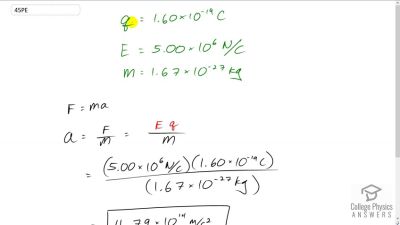 45PE
q = 1.60 × 10⁻¹⁹ C
E = 5.00 × 10⁶ N/C
m = 1.67 × 10⁻²⁷ kg
F = ma
a = F/m = E q/m
= (5.00 × 10⁶ N/C)(1.60 × 10⁻¹⁹ C)/(1.67 × 10⁻²⁷ kg)
= 4.79 × 10¹⁴ m/s²
College Physics
ANSWERS